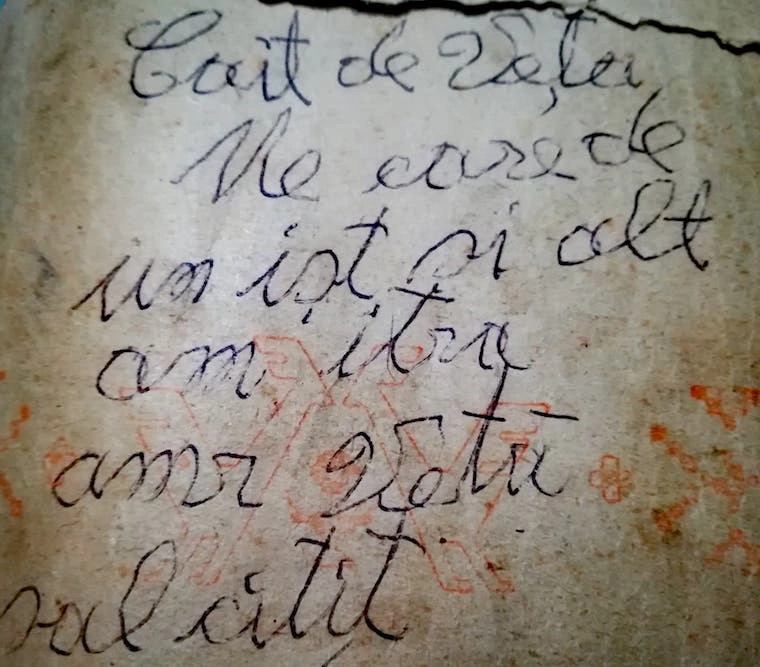 Cait de Veța
Me care de
un ist și alt
am itra
amr Vetā
sal citit